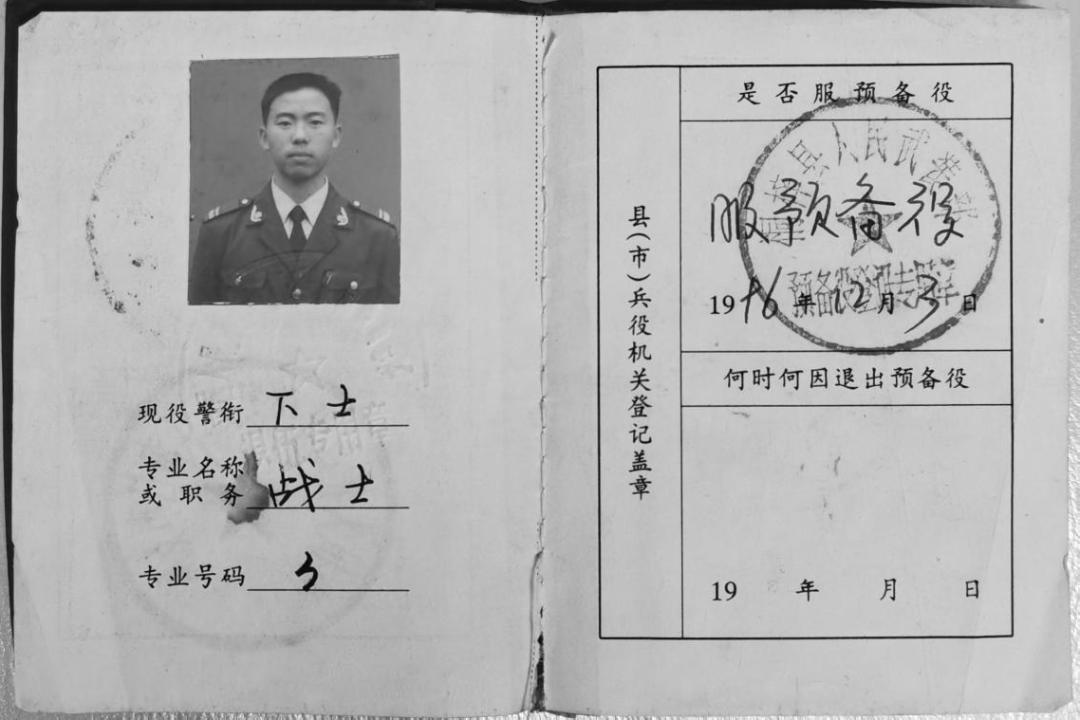 现役警衔 下士
专业名称
或职务 战士
专业号码
县(市)兵役机关登记盖章
是否服预备役
服预备役
1996年12月3日
何时何因退出预备役
19 年 月 日
县人民武装部
预备役登记专用章